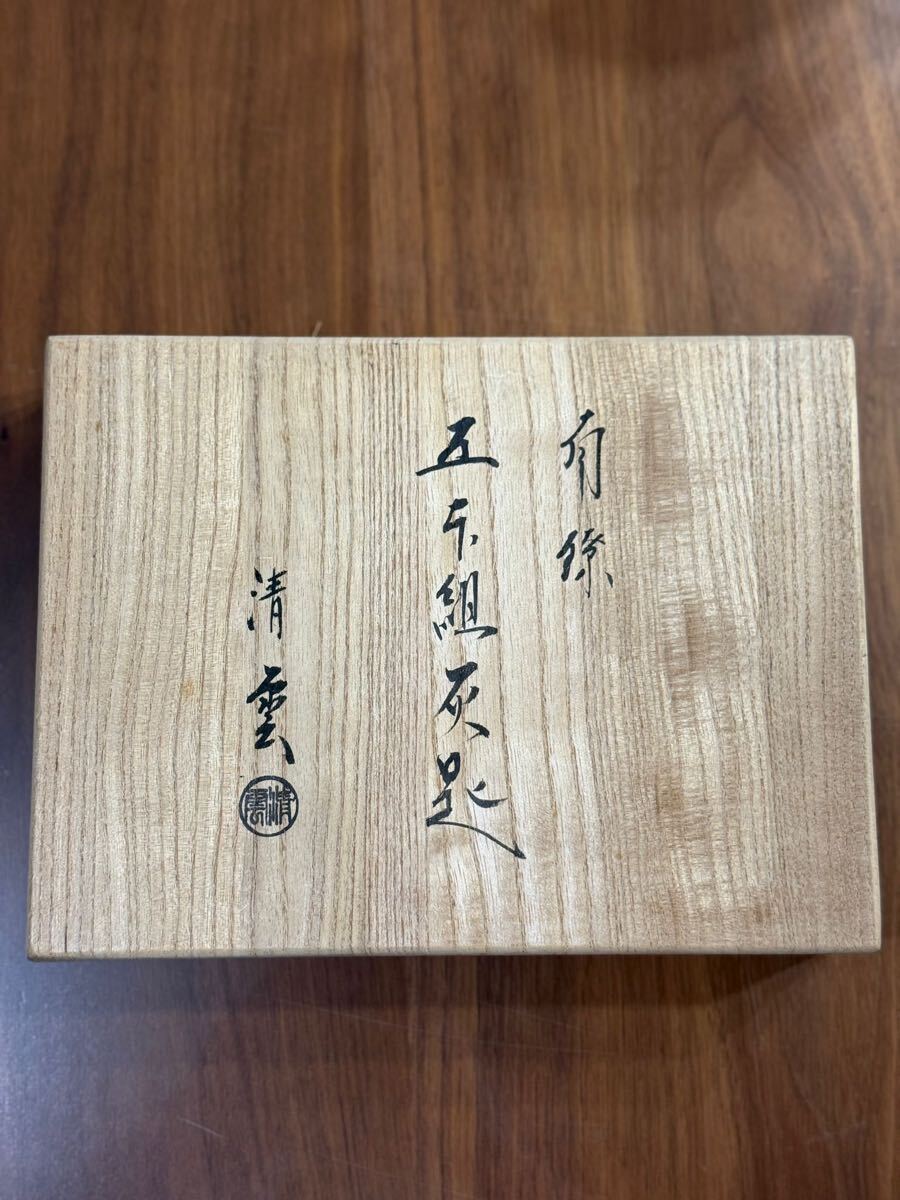 南鐐
五本組灰匙
清雲
清雲